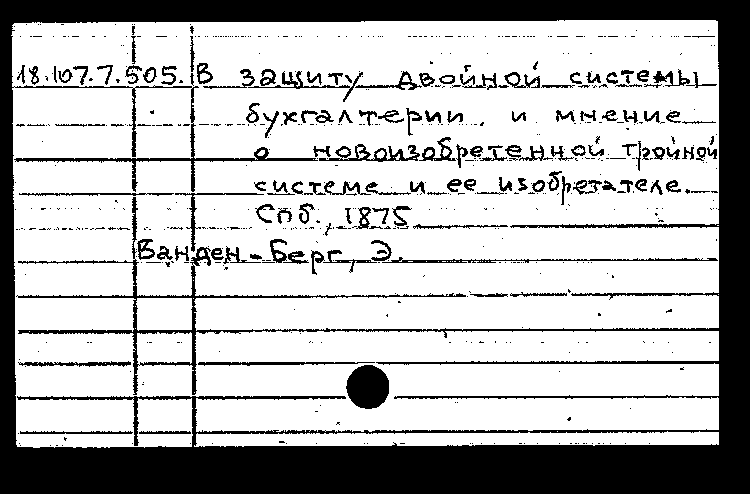 18.107.7.505. В защиту двойной системы
бухгалтерии, и мнение
о новоизобретенной тройной
системе и ее изобретателе.
Спб., 1875
Ванден-Берг, Э.